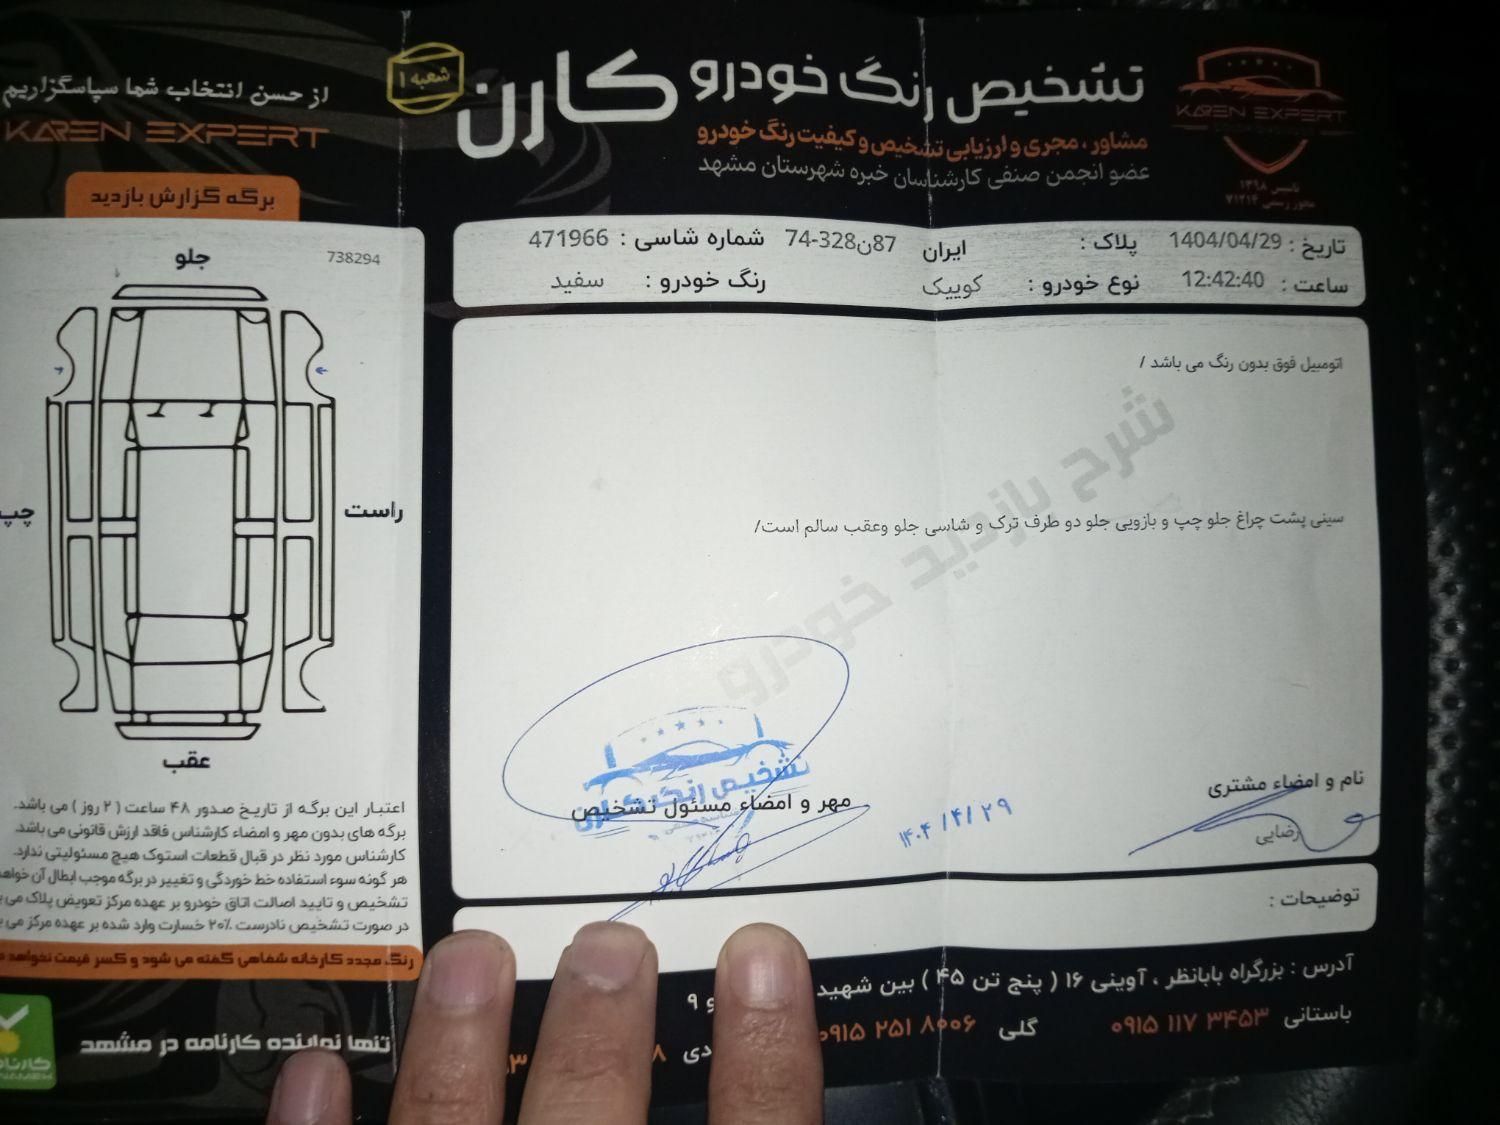 تشخیص رنگ خودرو کارن
شعبه ۱
مشاور، مجری و ارزیابی تشخیص و کیفیت رنگ خودرو
عضو انجمن صنفی کارشناسان خبره شهرستان مشهد
KAREN EXPERT
تاسیس ۱۳۹۸
مجوز رسمی ۷۱۲۱۴
تاریخ : 1404/04/29 پلاک : ایران 74-328ن87 شماره شاسی : 471966
ساعت : 12:42:40 نوع خودرو : کوییک رنگ خودرو : سفید
اتومبیل فوق بدون رنگ می باشد /
شرح بازدید خودرو
سینی پشت چراغ جلو چپ و بازویی جلو دو طرف ترک و شاسی جلو وعقب سالم است/
نام و امضاء مشتری
رضایی
۱۴۰۴/۴/۲۹
تشخیص رنگ کارن
مهر و امضاء مسئول تشخیص
توضیحات :
آدرس : بزرگراه بابانظر ، آوینی ۱۶ ( پنج تن ۴۵ ) بین شهید و ۹
باستانی ۰۹۱۵ ۱۱۷ ۳۴۵۳ گلی ۰۹۱۵ ۲۵۱ ۸۰۰۶
از حسن انتخاب شما سپاسگزاریم
KAREN EXPERT
برگه گزارش بازدید
738294
جلو
راست
چپ
عقب
اعتبار این برگه از تاریخ صدور ۴۸ ساعت ( ۲ روز ) می باشد.
برگه های بدون مهر و امضاء کارشناس فاقد ارزش قانونی می باشد.
کارشناس مورد نظر در قبال قطعات استوک هیچ مسئولیتی ندارد.
هر گونه سوء استفاده خط خوردگی و تغییر در برگه موجب ابطال آن
تشخیص و تایید اصالت اتاق خودرو بر عهده مرکز تعویض پلاک
در صورت تشخیص نادرست ۲۰٪ خسارت وارد شده بر عهده مرکز
رنگ مجدد کارخانه شفاهی گفته می شود و کسر قیمت نخواهد
تنها نماینده کارنامه در مشهد